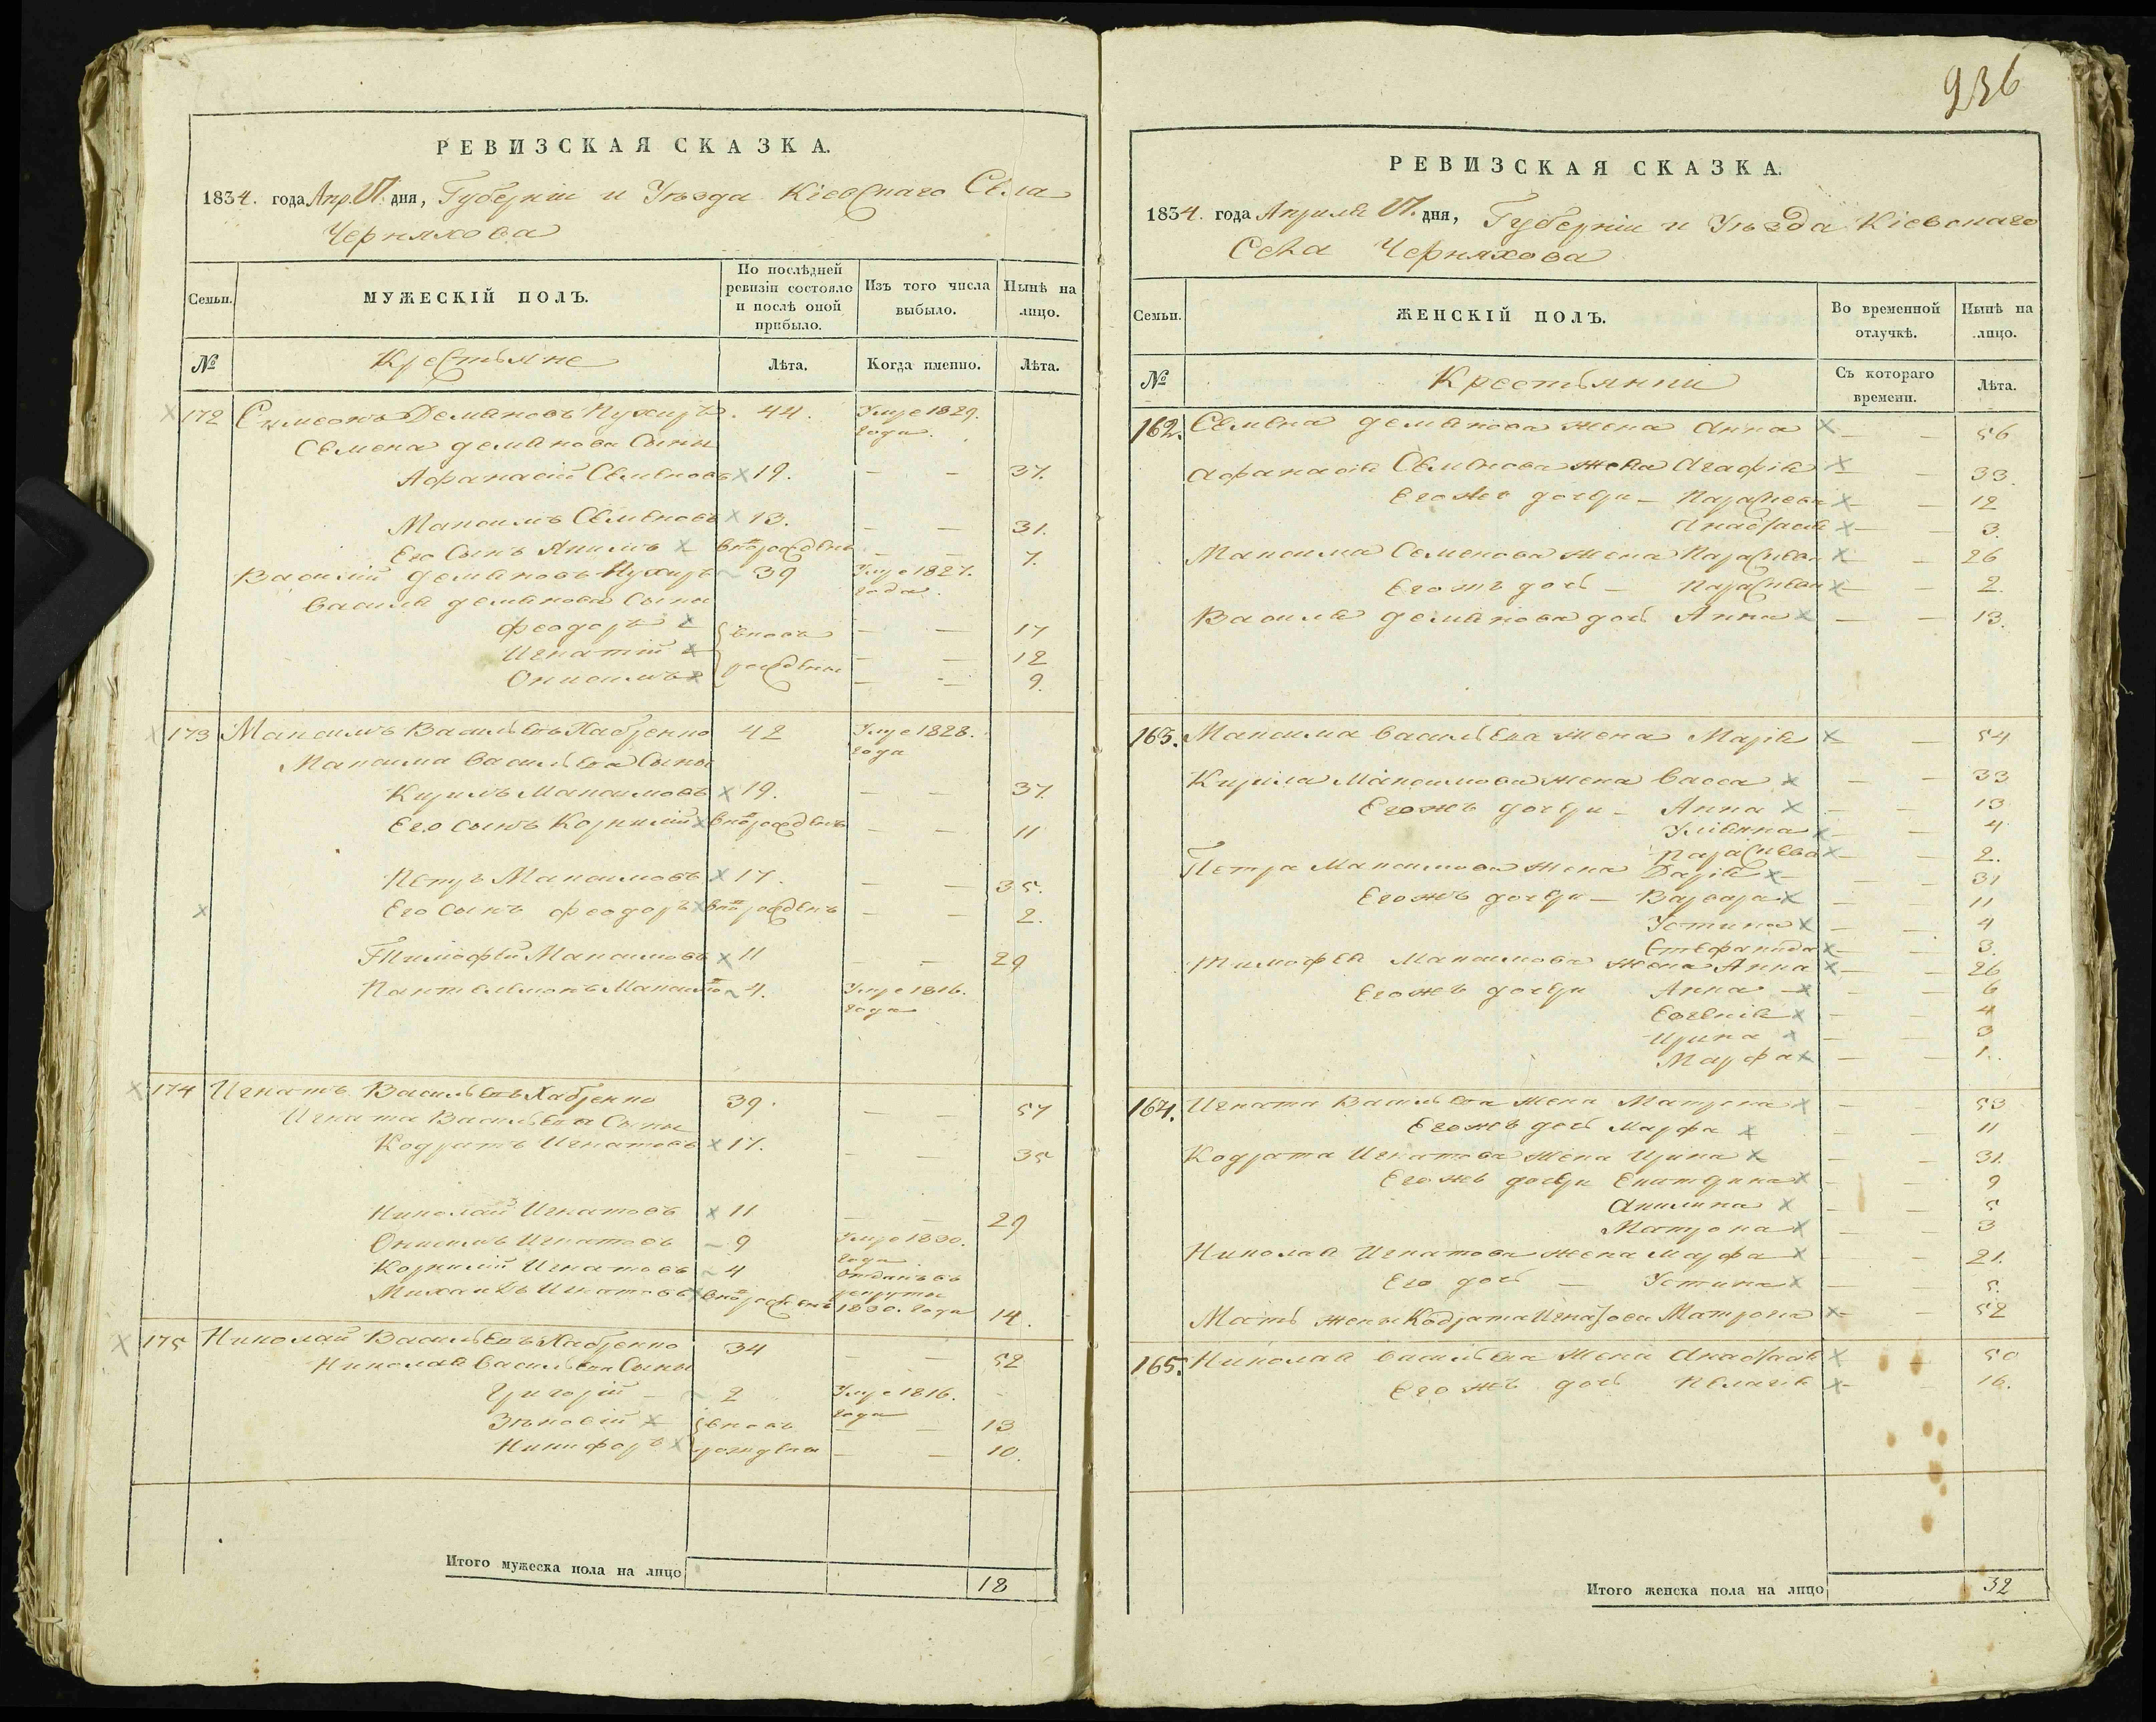 РЕВИЗСКАЯ СКАЗКА.
1834. года Апр. дня, Губернiи и Уѣзда Кiевскаго Села
Черняхова
Семьи.
МУЖЕСКIЙ ПОЛЪ.
По послѣдней ревизiи состояло и послѣ оной прибыло.
Изъ того числа выбыло.
Нынѣ на лицо.
№
Крестьяне
Лѣта.
Когда именно.
Лѣта.
172 Симеонъ Демяновъ 44. Умре 1829.
года.
Семена демянова Сыны
Афанасiй Семеновъ 19. — — 37.
Максимъ Семеновъ 13. — — 31.
Его Сынъ Акимъ — — 7.
Василiй демяновъ 39 Умре 1827.
года.
Василя демянова Сыны
Феодоръ вновь — — 17
Игнатiй рожденые — — 12
Онисимъ — — 9.
173 Максимъ Васильевъ Хабренко 42 Умре 1828.
года
Максима Васильева Сыны
Кирилъ Максимовъ 19. — — 37.
Его сынъ Корнилiй — — 11
Петръ Максимовъ 17. — — 35.
Его Сынъ Феодоръ — — 2.
Тимофей Максимовъ 11 — — 29
Пантелемонъ 4. Умре 1816.
года
174 Игнатъ Васильевъ Хабренко 39. — — 57
Игната Васильева Сыны
Кодратъ Игнатовъ 17. — — 35
Николай Игнатовъ 11 — — 29
Онисимъ Игнатовъ 9 Умре 1830.
года
Корнилiй Игнатовъ 4 Отданъ въ
рекруты
Михаилъ Игнатовъ 1830. года 14.
175 Николай Васильевъ Хабренко 34 — — 52
Николая Васильева Сыны
Григорiй — 2 Умре 1816.
года
Зѣновiй вновь — — 13
Никифоръ рожденые — — 10.
Итого мужеска пола на лицо 18
936
РЕВИЗСКАЯ СКАЗКА.
1834. года Апреля дня, Губернiи и Уѣзда Кiевскаго
Села Черняхова
Семьи.
ЖЕНСКIЙ ПОЛЪ.
Во временной отлучкѣ.
Нынѣ на лицо.
№
Крестьянки
Съ котораго времени.
Лѣта.
162. Семена демянова жена Анна — — 56
Афанасiя Семенова жена Агафiя — 33.
Егожъ дочери — Параскева — 12
Анастасiя — — 3.
Максима Семенова жена Параскева — — 26
Егожъ дочь — Параскева — — 2.
Василя демянова дочь Анна — — 13.
163. Максима Васильева жена Марiя — 54
Кирила Максимова жена Васса — — 33
Егожъ дочери — Анна — — 13
Улiянна — — 4
Параскева — — 2.
Петра Максимова жена Дарiя — — 31
Егожъ дочери — Варвара — — 11
Устина — — 4
Стефанида — 3.
Тимофея Максимова жена Анна — — 26
Егожъ дочери Анна — — 6
Евгенiя — — 4
Ирина — — 3
Марфа — — 1.
164. Игната Васильева жена Матрона — — 53
Егожъ дочь Марфа — — 11
Кодрата Игнатова жена Ирина — — 31.
Егожъ дочери — — 9
Акилина — — 5
Матрона — — 3
Николая Игнатова жена Марфа — — 21.
Его дочь — Устина — — 5.
Мать жены Кодрата Игнатова Матрона — — 52
165. Николая Васильева жена Анастасiя 50
Егожъ дочь Пелагiя — 16.
Итого женска пола на лицо 32